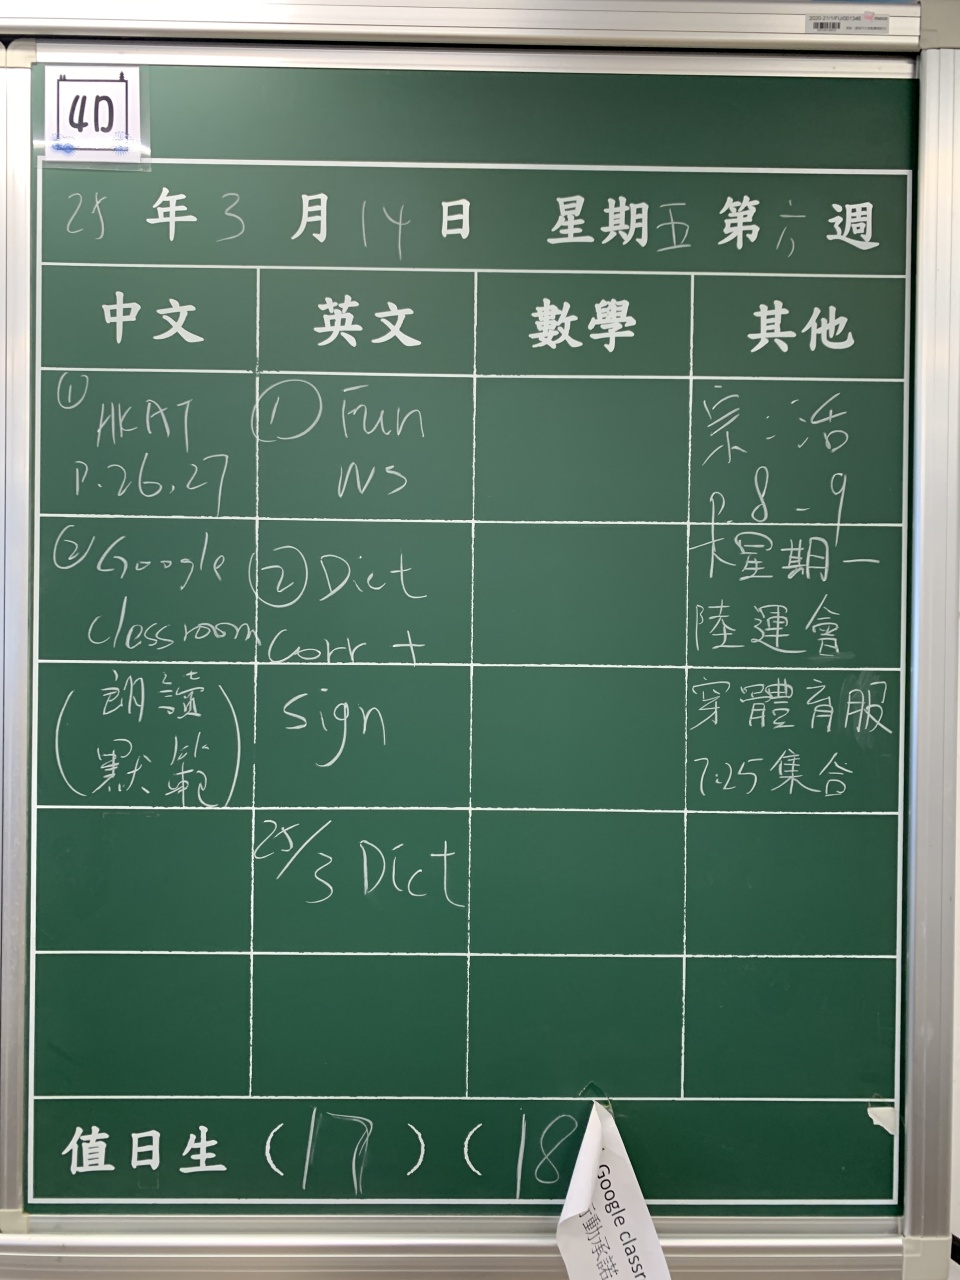 4D
25 年 3 月 14 日 星期五 第六週
中文 英文 數學 其他
① HKAT
P.26,27
② Google
classroom
(朗讀
默範)
① Fun
WS
② Dict
Corr +
sign
25/3 Dict
宗:活
p.8-9
星期一
陸運會
穿體育服
7:25集合
值日生 (17) (18
Google classr
動承諾